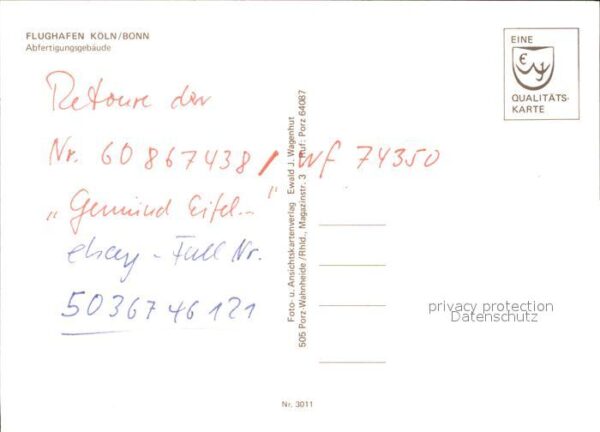 FLUGHAFEN KÖLN/BONN
Abfertigungsgebäude
EINE
QUALITÄTS-
KARTE
Retoure der
Nr. 60 867438 / wf 74350
„Gemünd Eifel..."
ebay - Fall Nr.
5036746121
Foto- u. Ansichtskartenverlag Ewald J. Wagenhut
505 Porz-Wahnheide/Rhld., Magazinstr. 3 Ruf: Porz 64087
privacy protection
Datenschutz
Nr. 3011